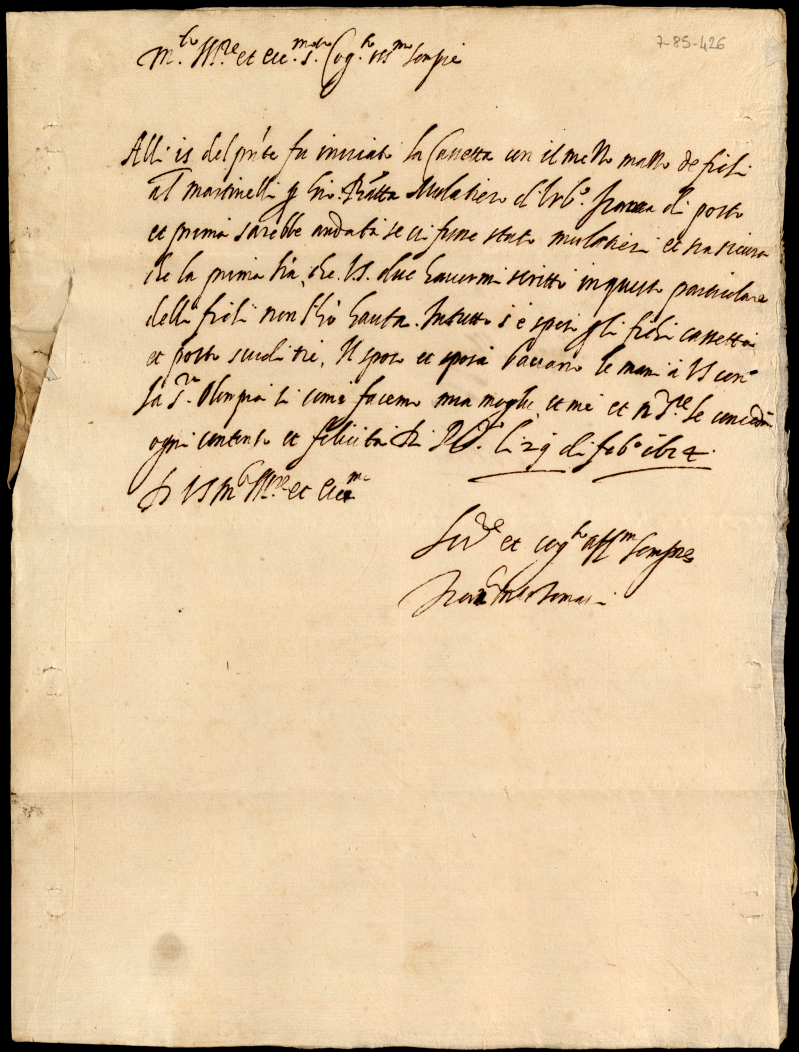 7-85-426
m.to Ill.re et ecc.mo s.r Cog.to oss.mo sempre
Alli 15 del pñte fu inviato la Cassetta con il mezzo de fichi
al Martinelli p Gio. Batta Mulatiero d'Urb.o franca di porto
et prima sarebbe andata se ci fusse stato mulatieri et sia sicura
che la prima l'ra, che VS. dice havermi scritto in questo particulare
delli fichi non l'hò hauta. In tutto s'è speso p li fichi cassetta
et porto scudi tre, Il sposo et sposa bacciano le mani à VS con
la S.ra Olimpia si come facemo mia moglie, et me et N. S.re le conceda
ogni contento et felicità Di li 29 di feb.o 1624.
Di VS m.to Ill.re et ecc.ma
Ser.re et cog.to aff.mo sempre